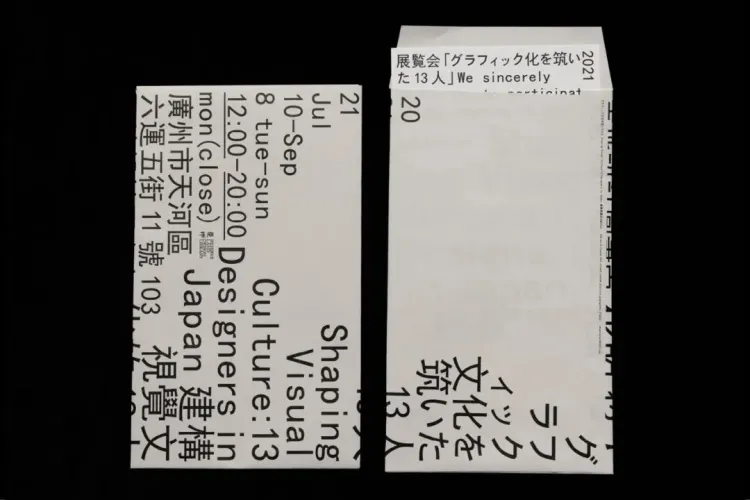 21
Jul
10-Sep
8 tue-sun
12:00-20:00
mon(close)
廣州市天河區
六運五街 11 號 103
Shaping
Visual
Culture:13
Designers in
Japan 建構
視覺文
2021
展覧会「グラフィック化を筑い
た13人」We sincerely
20
グ
ラフ
ィック
文化を
筑いた
13人